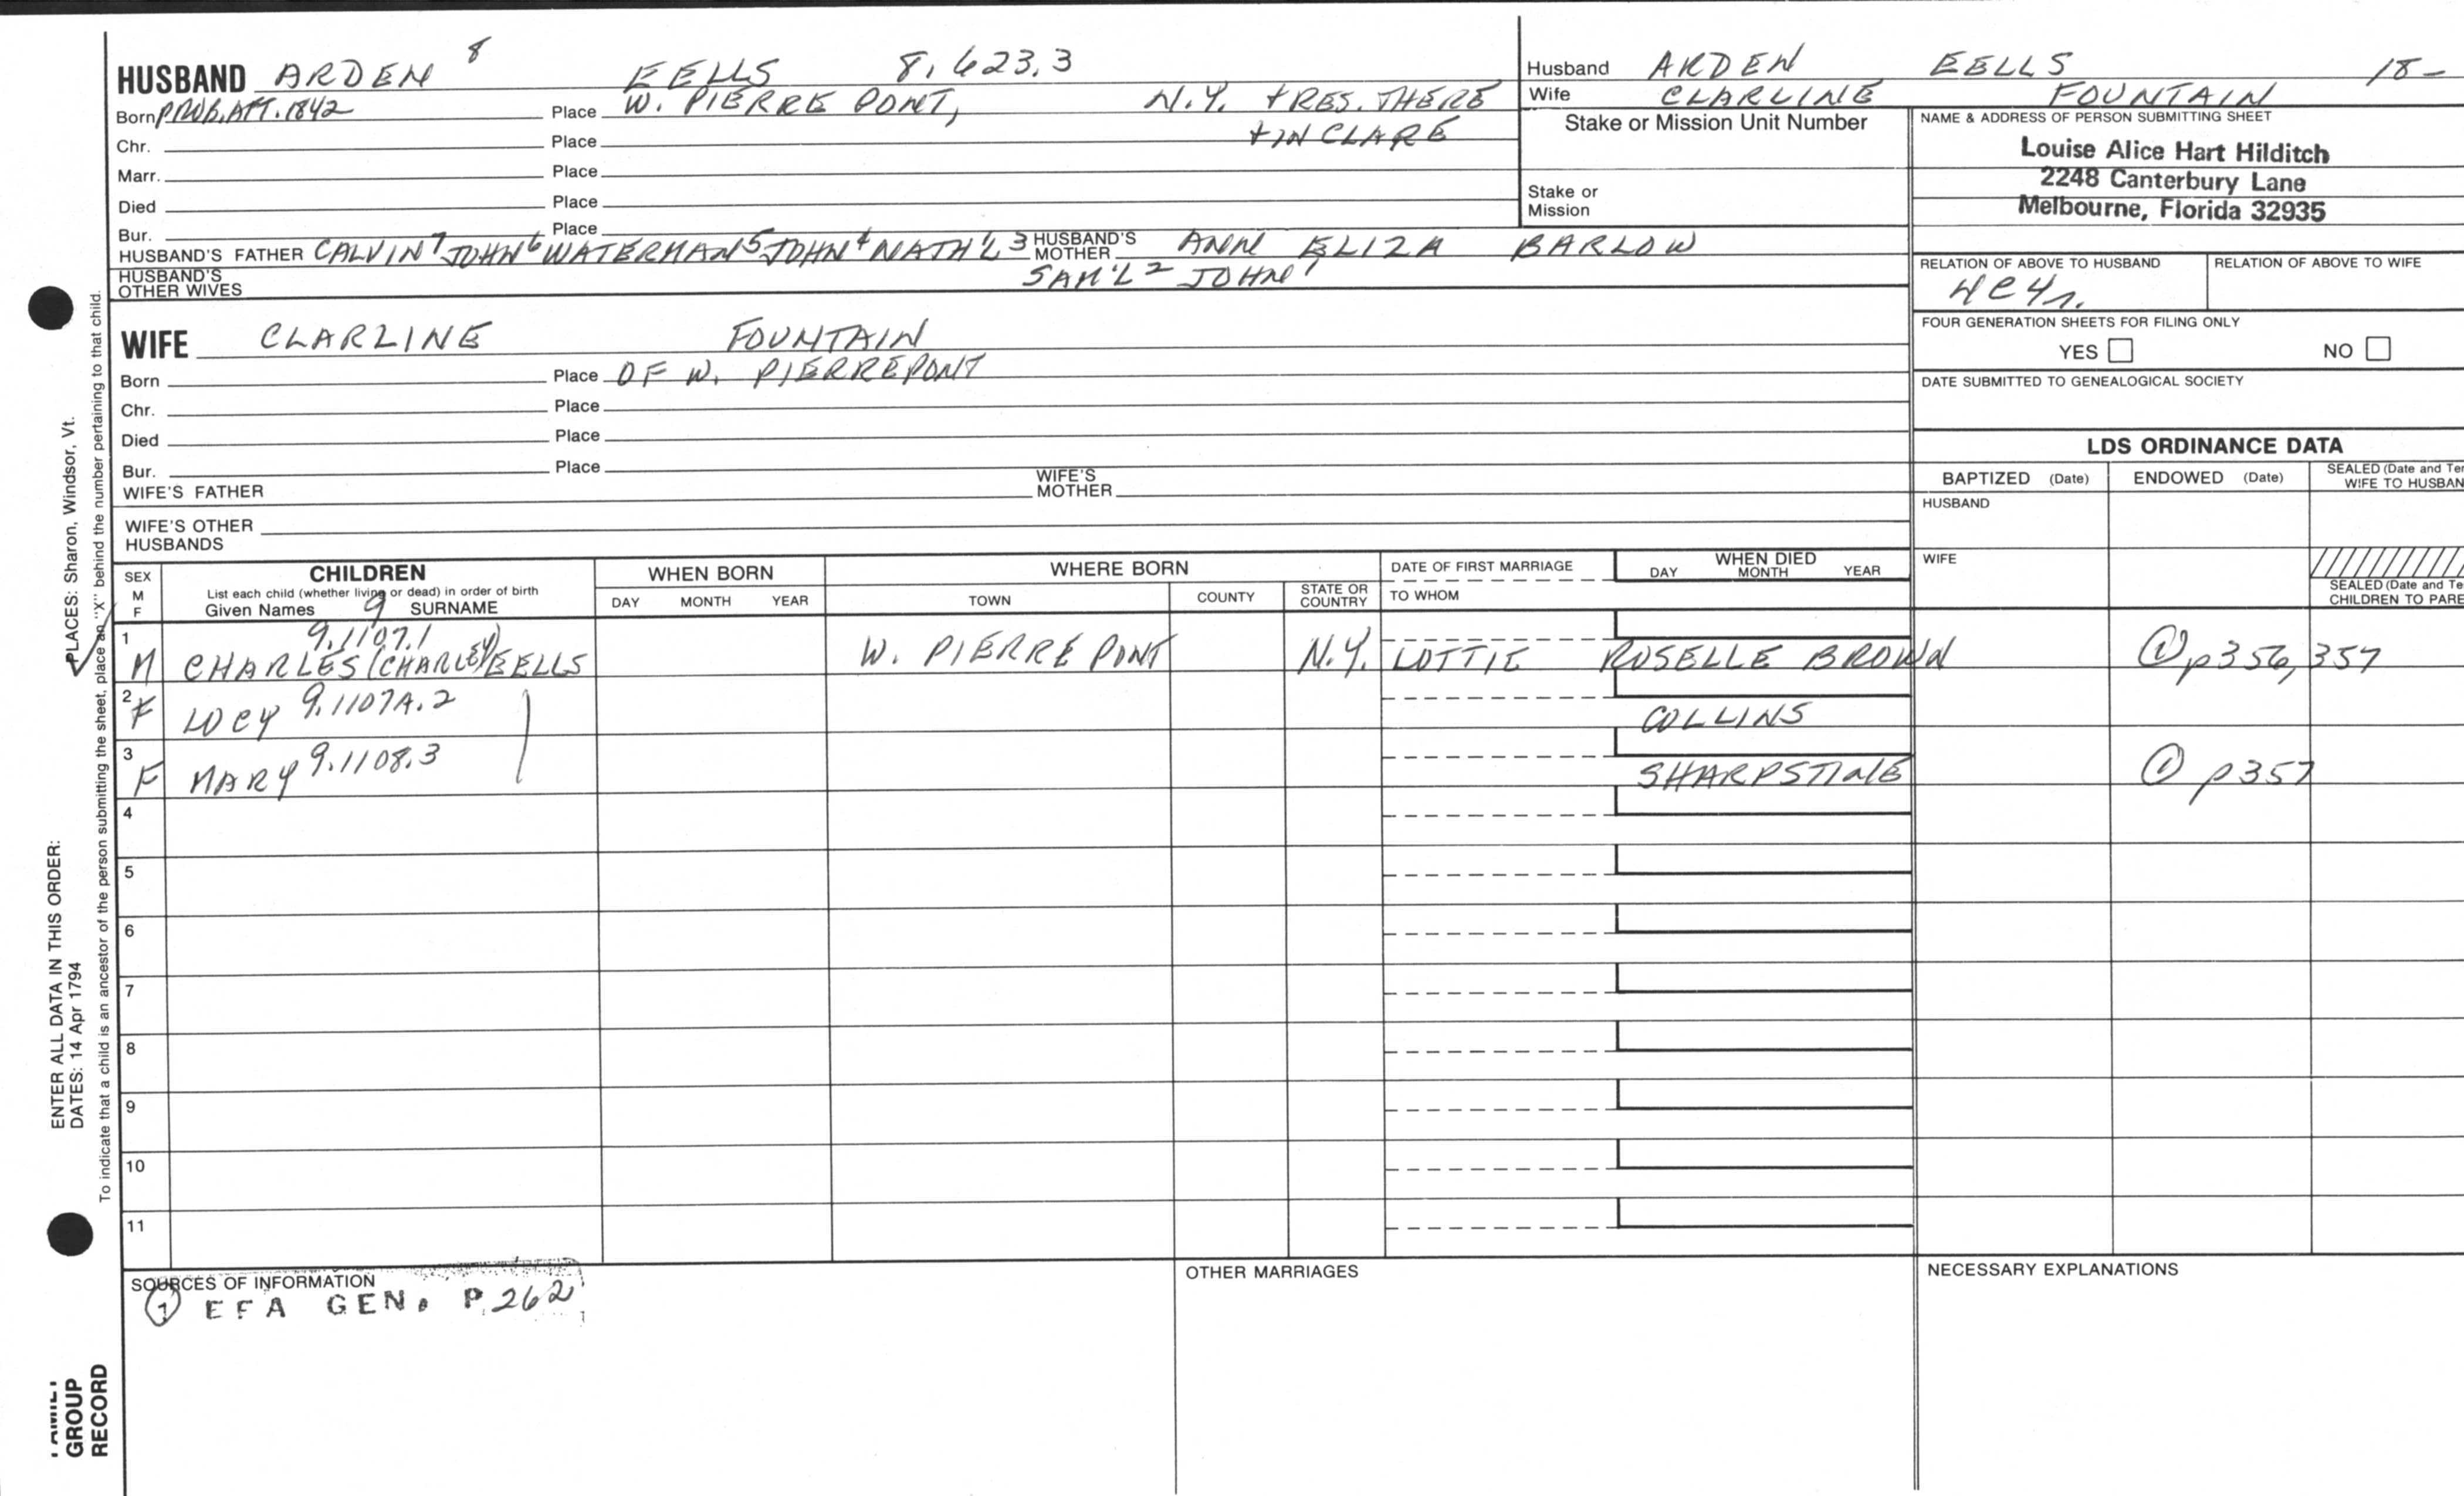 HUSBAND ARDEN 8 EELLS 8.623.3
Born PROB. AFT. 1842 Place W. PIERRE PONT, N.Y. + RES. THERE
Chr. Place + IN CLARE
Marr. Place
Died Place
Bur. Place
HUSBAND'S FATHER CALVIN 7 JOHN 6 WATERMAN 5 JOHN 4 NATH'L 3 HUSBAND'S MOTHER ANN ELIZA BARLOW
HUSBAND'S OTHER WIVES SAM'L 2 JOHN 1
WIFE CLARLINE FOUNTAIN
Born Place OF W. PIERREPONT
Chr. Place
Died Place
Bur. Place
WIFE'S FATHER WIFE'S MOTHER
WIFE'S OTHER HUSBANDS
Husband ARDEN EELLS 18-
Wife CLARLINE FOUNTAIN
Stake or Mission Unit Number
Stake or Mission
NAME & ADDRESS OF PERSON SUBMITTING SHEET
Louise Alice Hart Hilditch
2248 Canterbury Lane
Melbourne, Florida 32935
RELATION OF ABOVE TO HUSBAND RELATION OF ABOVE TO WIFE
4C4r.
FOUR GENERATION SHEETS FOR FILING ONLY
YES NO
DATE SUBMITTED TO GENEALOGICAL SOCIETY
LDS ORDINANCE DATA
BAPTIZED (Date) ENDOWED (Date) SEALED (Date and Te
WIFE TO HUSBAN
HUSBAND
WIFE
SEALED (Date and Te
CHILDREN TO PARE
SEX M F CHILDREN WHEN BORN WHERE BORN DATE OF FIRST MARRIAGE WHEN DIED
List each child (whether living or dead) in order of birth
Given Names 9 SURNAME DAY MONTH YEAR TOWN COUNTY STATE OR COUNTRY TO WHOM DAY MONTH YEAR
1 9.1107.1
M CHARLES (CHARLEY) EELLS W. PIERRE PONT N.Y. LOTTIE ROSELLE BROWN 1 p356, 357
2 F LUCY 9.1107A.2 COLLINS
3 F MARY 9.1108.3 SHARPSTINE 1 p357
4
5
6
7
8
9
10
11
SOURCES OF INFORMATION
1 EFA GEN. P. 262
OTHER MARRIAGES
NECESSARY EXPLANATIONS
ENTER ALL DATA IN THIS ORDER:
DATES: 14 Apr 1794 PLACES: Sharon, Windsor, Vt.
To indicate that a child is an ancestor of the person submitting the sheet, place an "X" behind the number pertaining to that child.
FAMILY
GROUP
RECORD